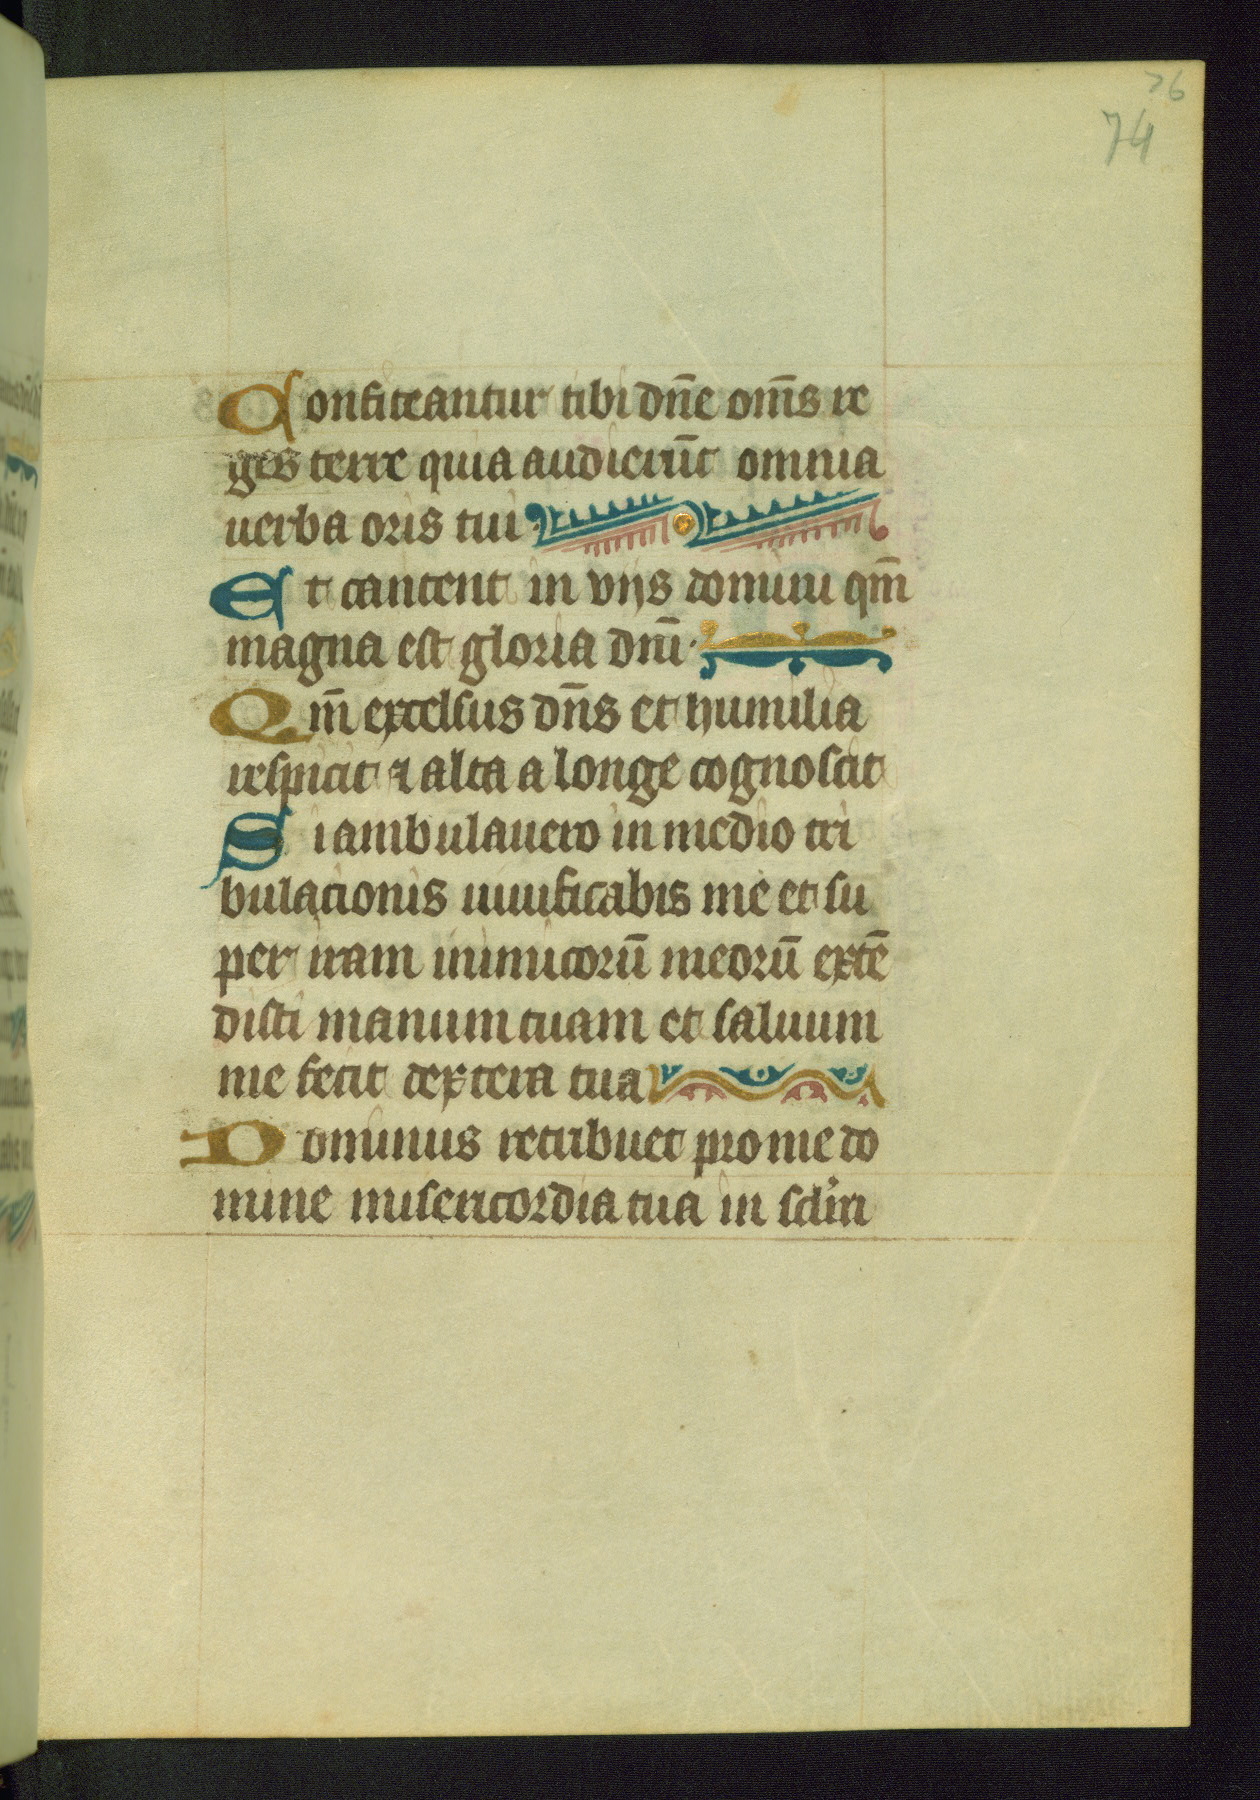 76
74
Confiteantur tibi dn̄e om̄s re
ges terre quia audierūt omnia
uerba oris tui
Et cantent in vijs domini qm̄
magna est gloria dn̄i
Qm̄ excelsus dn̄s et humilia
respicit ⁊ alta a longe cognoscit
Si ambulauero in medio tri
bulacionis uiuificabis me et su
per iram inimicorū meorū extē
disti manum tuam et saluum
me fecit dextera tua
Dominus retribuet pro me do
mine misericordia tua in